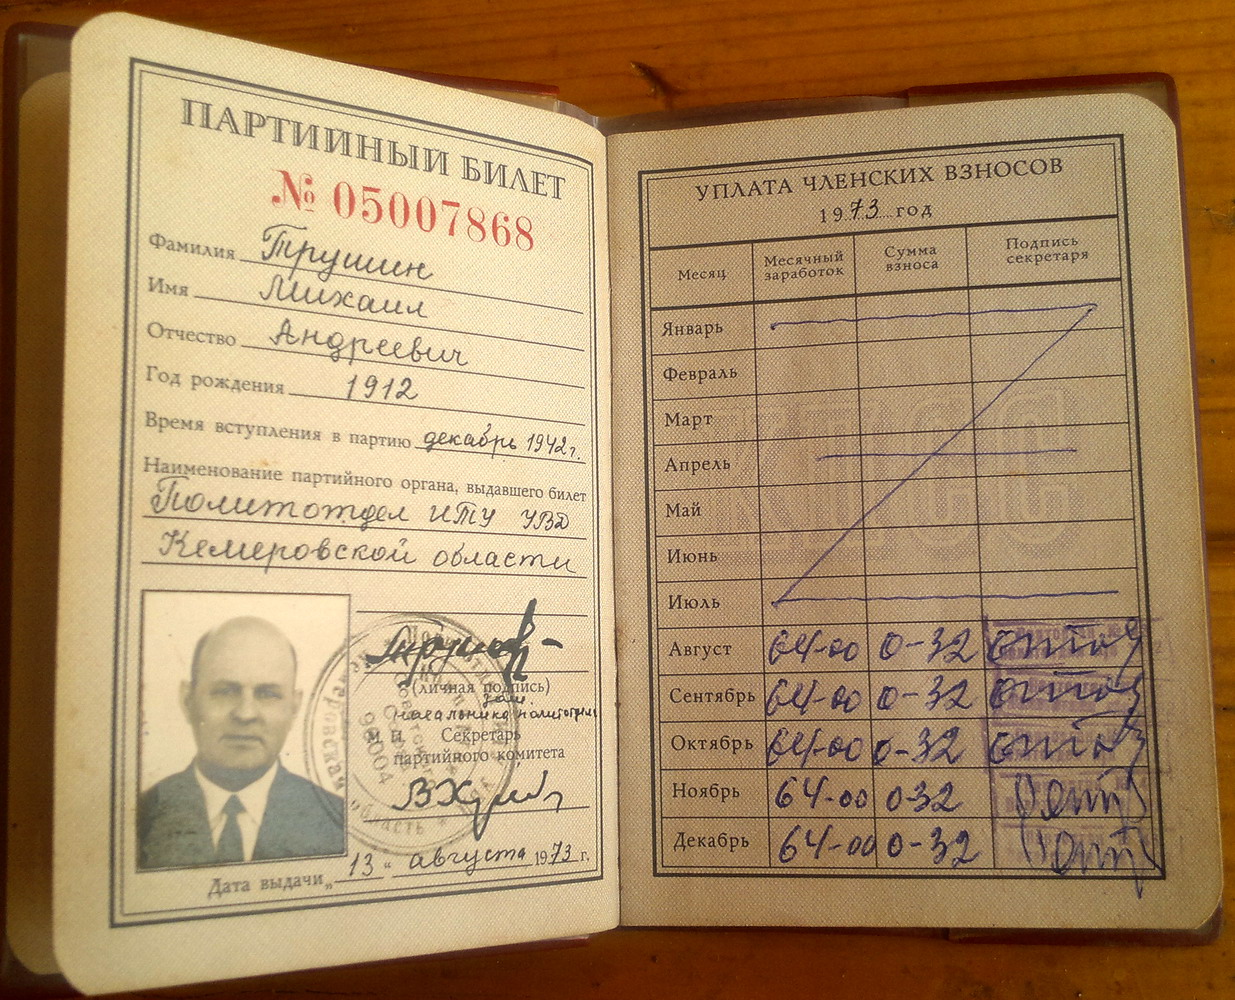 ПАРТИЙНЫЙ БИЛЕТ
№ 05007868
Фамилия Трушин
Имя Михаил
Отчество Андреевич
Год рождения 1912
Время вступления в партию декабрь 1942 г.
Наименование партийного органа, выдавшего билет
Политотдел ИТУ УВД
Кемеровской области
(личная подпись)
зам. начальника политотдела
М. П. Секретарь
партийного комитета
Дата выдачи „13“ августа 1973 г.
УПЛАТА ЧЛЕНСКИХ ВЗНОСОВ
1973 год
Месяц Месячный заработок Сумма взноса Подпись секретаря
Январь
Февраль
Март
Апрель
Май
Июнь
Июль
Август 64-00 0-32
Сентябрь 64-00 0-32
Октябрь 64-00 0-32
Ноябрь 64-00 0-32
Декабрь 64-00 0-32